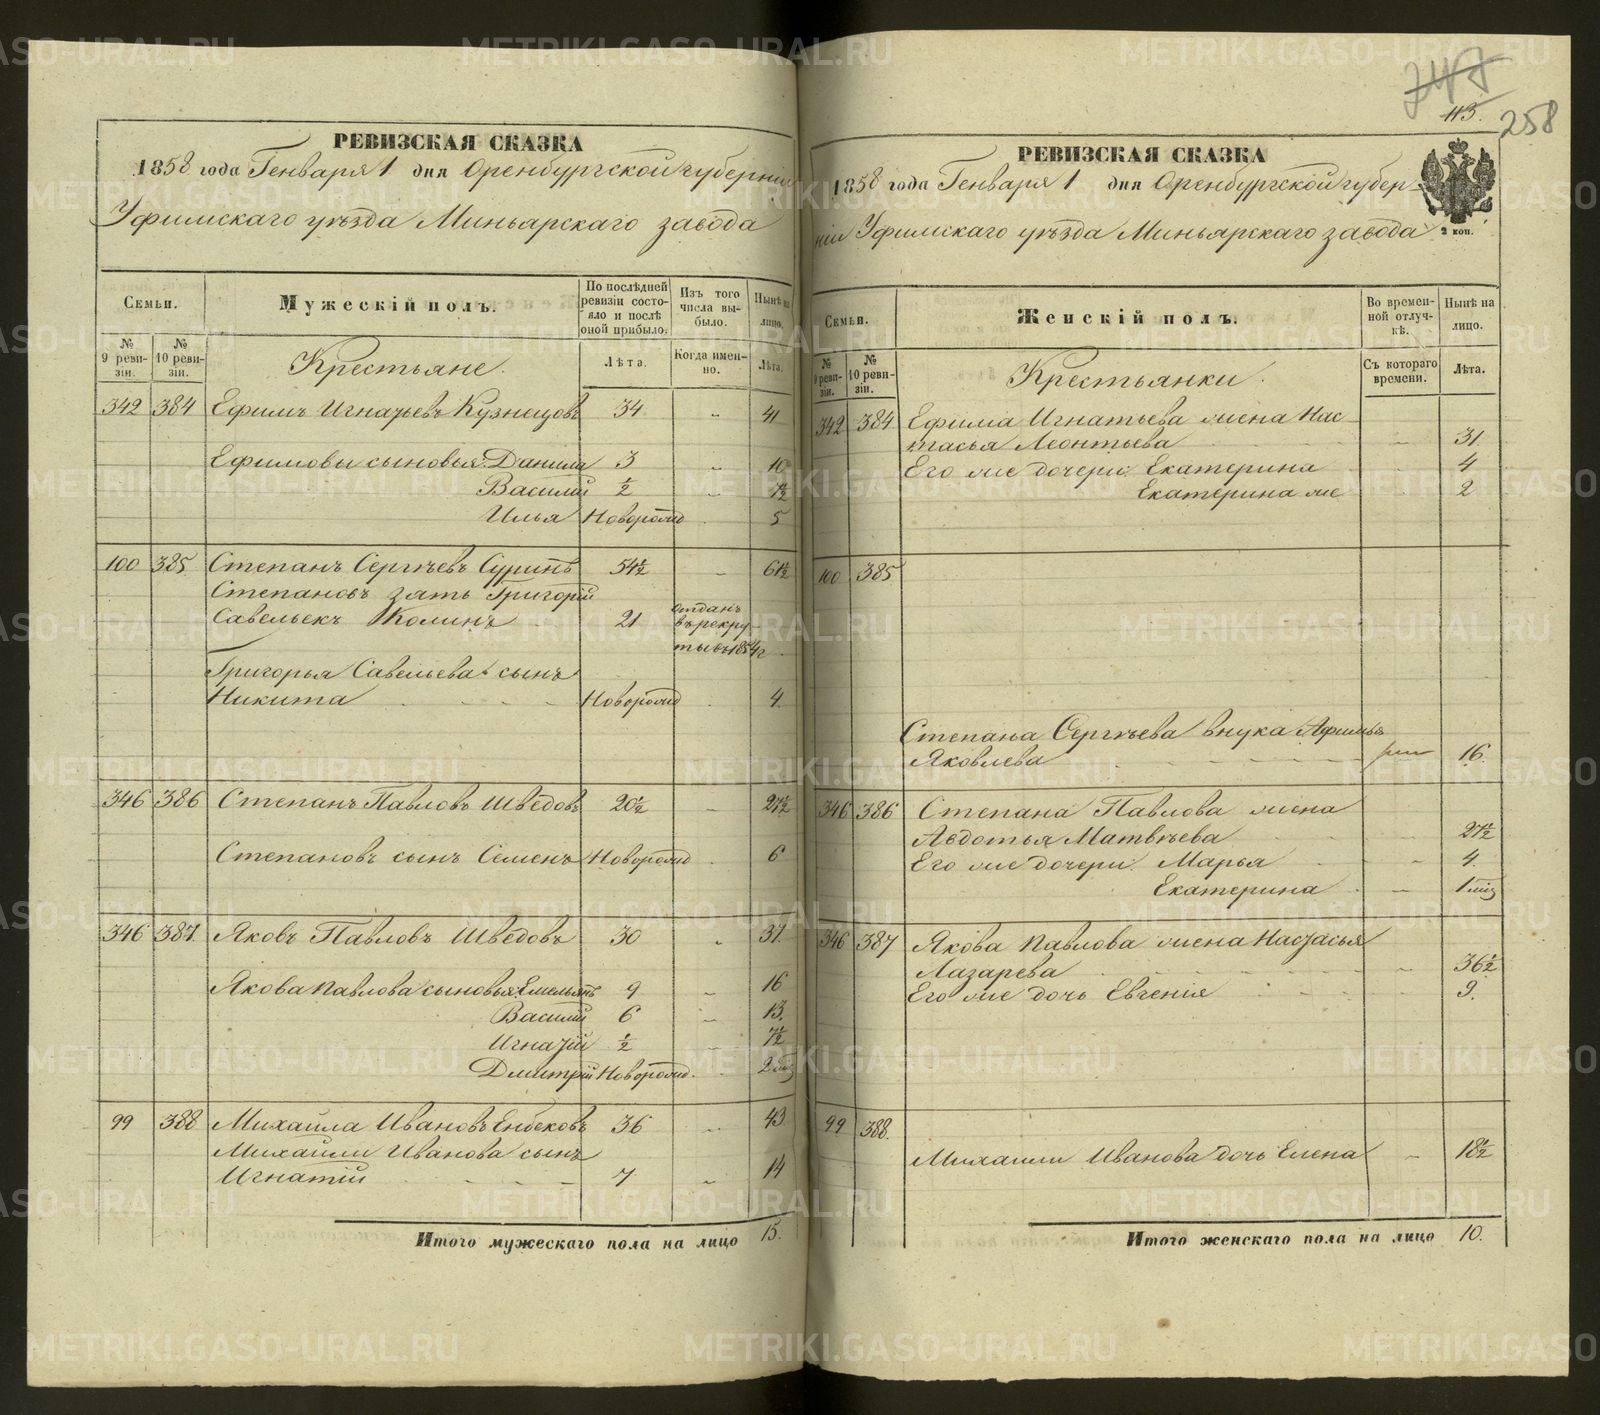 РЕВИЗСКАЯ СКАЗКА
1858 года Генваря 1 дня Оренбургской губернии
Уфимскаго уѣзда Миньярскаго завода
Семьи.
Мужескій полъ.
По послѣдней ревизіи состояло и послѣ оной прибыло.
Изъ того числа выбыло.
Нынѣ на лицо.
№ 9 ревизіи.
№ 10 ревизіи.
Крестьяне.
Лѣта.
Когда именно.
Лѣта.
342 384 Ефимъ Игнатьевъ Кузнецовъ 34 „ 41
Ефимовы сыновья: Данила 3 „ 10
Василій ½ „ 7½
Илья Новорожд. 5
100 385 Степанъ Сергѣевъ Суринъ 54½ „ 61½
Степановъ зять Григорій
Савельекъ Колинъ 21 отданъ
в рекру
ты въ 1854 г.
Григорья Савельева сынъ
Никита Новорожд. 4.
346 386 Степанъ Павловъ Шведовъ 20½ „ 27½
Степановъ сынъ Семенъ Новорожд. 6
346 387. Яковъ Павловъ Шведовъ 30 „ 37.
Якова Павлова сыновья: Емельянъ 9 „ 16
Василій 6 „ 13.
Игнатій ½ „ 7½
Дмитрій Новорожд. 2
99 388 Михайла Ивановъ Енбековъ 36 „ 43
Михайли Иванова сынъ
Игнатій 7 „ 14
Итого мужескаго пола на лицо 15.
247
113.
258
РЕВИЗСКАЯ СКАЗКА
1858 года Генваря 1 дня Оренбургской губер-
ніи Уфимскаго уѣзда Миньярскаго завода
2 коп.
Семьи.
Женскій полъ.
Во временной отлучкѣ.
Нынѣ на лицо.
№ 9 ревизіи.
№ 10 ревизіи.
Крестьянки.
Съ котораго времени.
Лѣта.
342 384 Ефима Игнатьева жена Нас
тасья Леонтьева „ 31.
Его же дочери: Екатерина 4
Екатерина же 2
100 385
Степана Сергѣева внука Афимья
Яковлева 16.
346 386 Степана Павлова жена
Авдотья Матвѣева 27½
Его же дочери: Марья „ 4.
Екатерина „ 1
346 387 Якова Павлова жена Настасья
Лазарева „ 36½
Его же дочь Евгенія 9.
99 388.
Михайли Иванова дочь Елена „ 18½
Итого женскаго пола на лицо 10.
METRIKI.GASO-URAL.RU